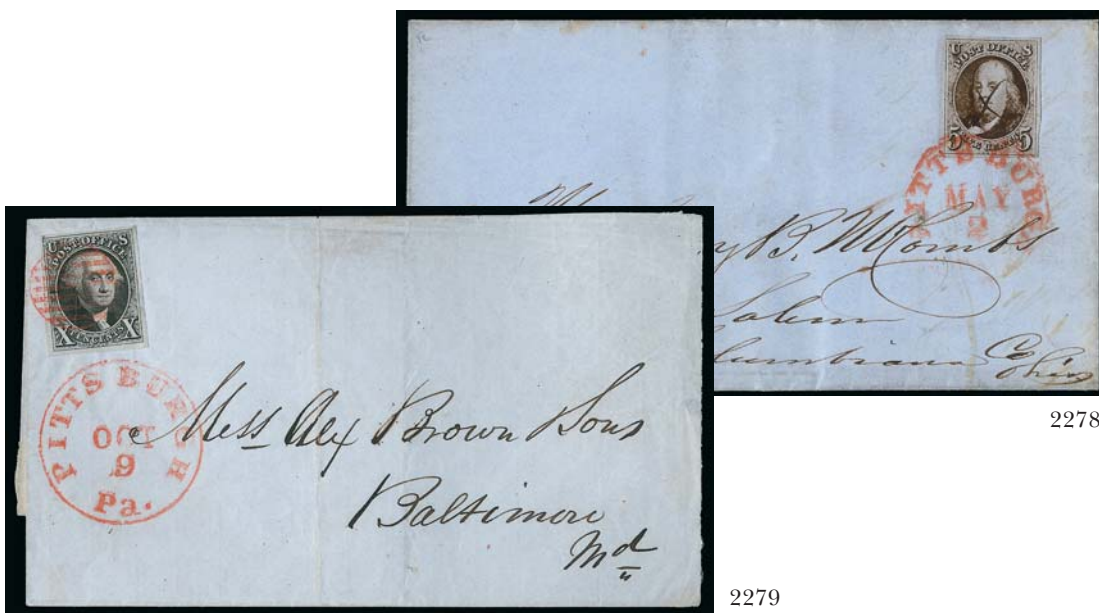 U S
POST OFFICE
5 FIVE CENTS 5
PITTSBURG
MAY
2
y B. McCombs
Salem
lumbiana Co Ohio
2278
U S
POST OFFICE
X TEN CENTS X
PITTSBURGH
OCT
9
Pa.
Mess Alex Brown Sons
Baltimore
Md
2279